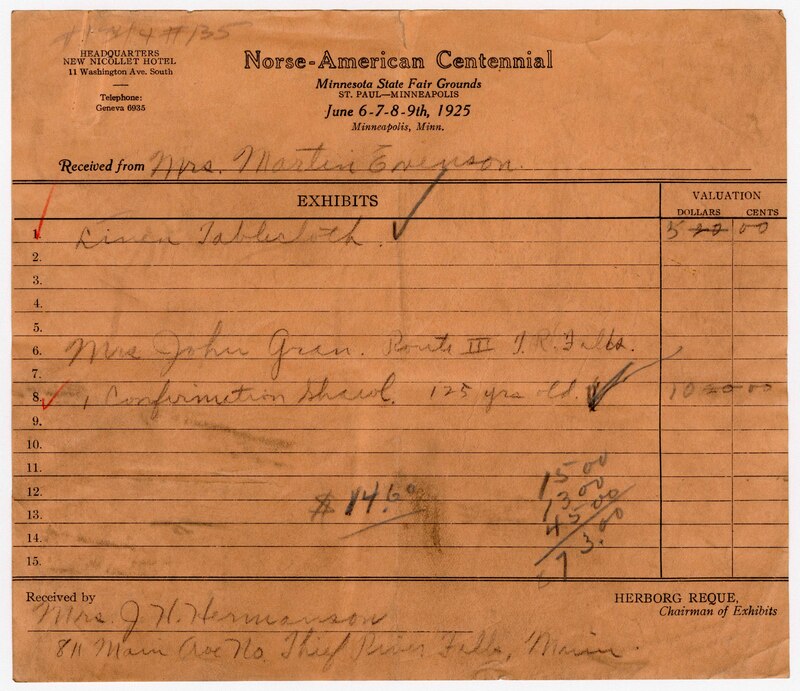 #135
HEADQUARTERS
NEW NICOLLET HOTEL
11 Washington Ave. South
Telephone:
Geneva 6935
Norse-American Centennial
Minnesota State Fair Grounds
ST. PAUL—MINNEAPOLIS
June 6-7-8-9th, 1925
Minneapolis, Minn.
Received from Mrs. Martin Evenson.
EXHIBITS
VALUATION
DOLLARS CENTS
1. Linen Tablecloth. 5 00
2.
3.
4.
5.
6. Mrs John Gran. Route III T.R. Falls.
7.
8. 1 Confirmation Shawl. 125 yrs old. 10 00
9.
10.
11.
12.
13.
14.
15.
$14.60
15 00
13 00
45.00
73.00
Received by
Mrs. J H. Hermanson
811 Main Ave No. Thief River Falls, Minn.
HERBORG REQUE,
Chairman of Exhibits